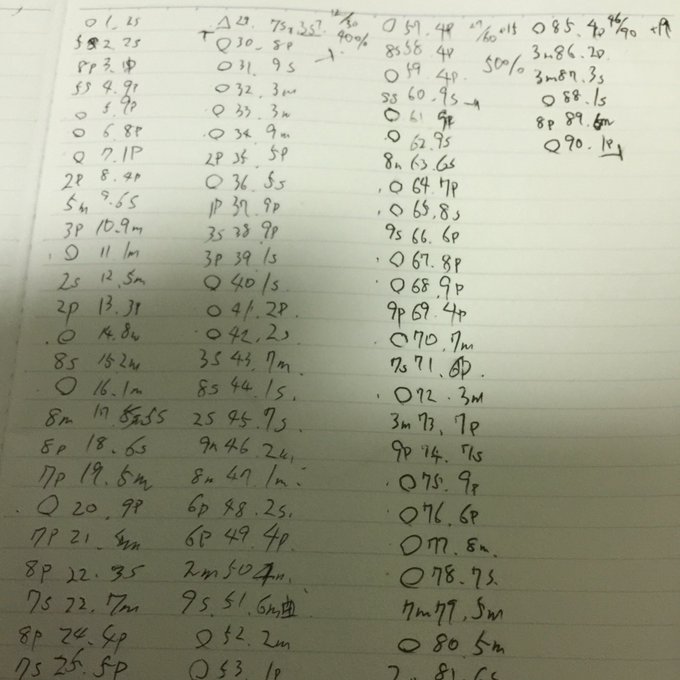 ○ 1. 2s
2. 2s
8p 3. 1p
4. 9p
○ 5. 9p
○ 6. 8p
○ 7. 1P
2P 8. 4p
5m 9. 6s
3p 10. 9m
○ 11. 1m
2s 12. 5m
2p 13. 3p
○ 14. 8m
8s 15. 2m
○ 16. 1m
8m 17. 5s
8p 18. 6s
7p 19. 5m
○ 20. 9p
7P 21.
8p 22. 3s
7s 22. 7m
8p 24. 4p
7s 25. 5p
△ 29. 7s
○ 30. 8p 40%
○ 31. 9s
○ 32. 3m
○ 33. 3m
○ 34. 9m
2P 35. 5p
○ 36. 5s
1p 37. 9p
3s 38 9p
3p 39. 1s
○ 40. 1s
○ 41. 2p
○ 42. 2s
3s 43. 7m
8s 44. 1s
2s 45. 7s
9m 46. 2m
8m 47. 1m
6p 48. 2s
6p 49. 4p
2m 50
9s. 51. 6m
○ 52. 2m
○ 53. 1p
○ 57. 4p 27/60 +15
8s 58. 4p
○ 59 4p. 50%
60. 9s
○ 61 9p
○ 62. 9s
8m 63. 6s
○ 64. 7p
○ 65. 8s
9s 66. 6p
○ 67. 8p
○ 68. 9p
9p 69. 4p
○ 70. 7m
7s 71. 6p
○ 72. 3m
3m 73. 7p
9p 74. 7s
○ 75. 9p
○ 76. 6p
○ 77. 8m
○ 78. 7s
7m 79. 5m
○ 80. 5m
81. 6s
○ 85. 4p 46/90
3m 86. 2p
3m 87. 3s
○ 88. 1s
8p 89. 6m
○ 90. 1p